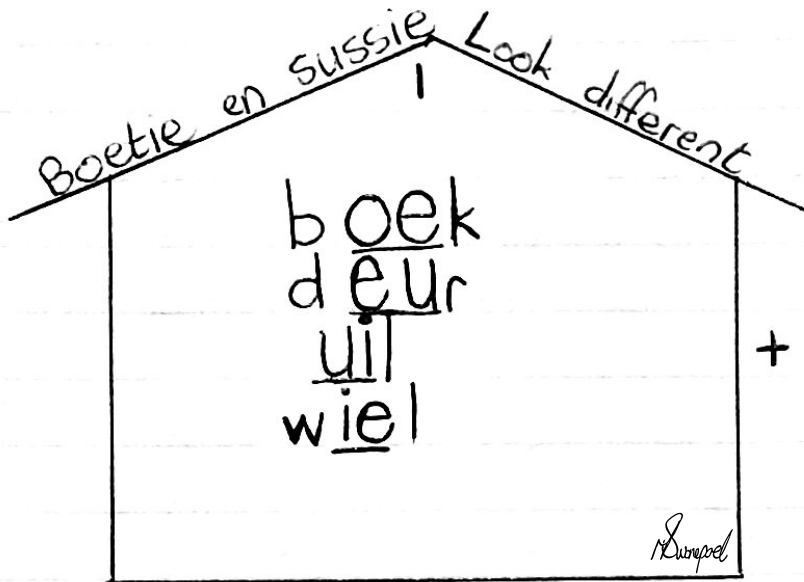 Boetie en sussie Look different
1
boek
deur
uil
wiel
+
MSwanepoel